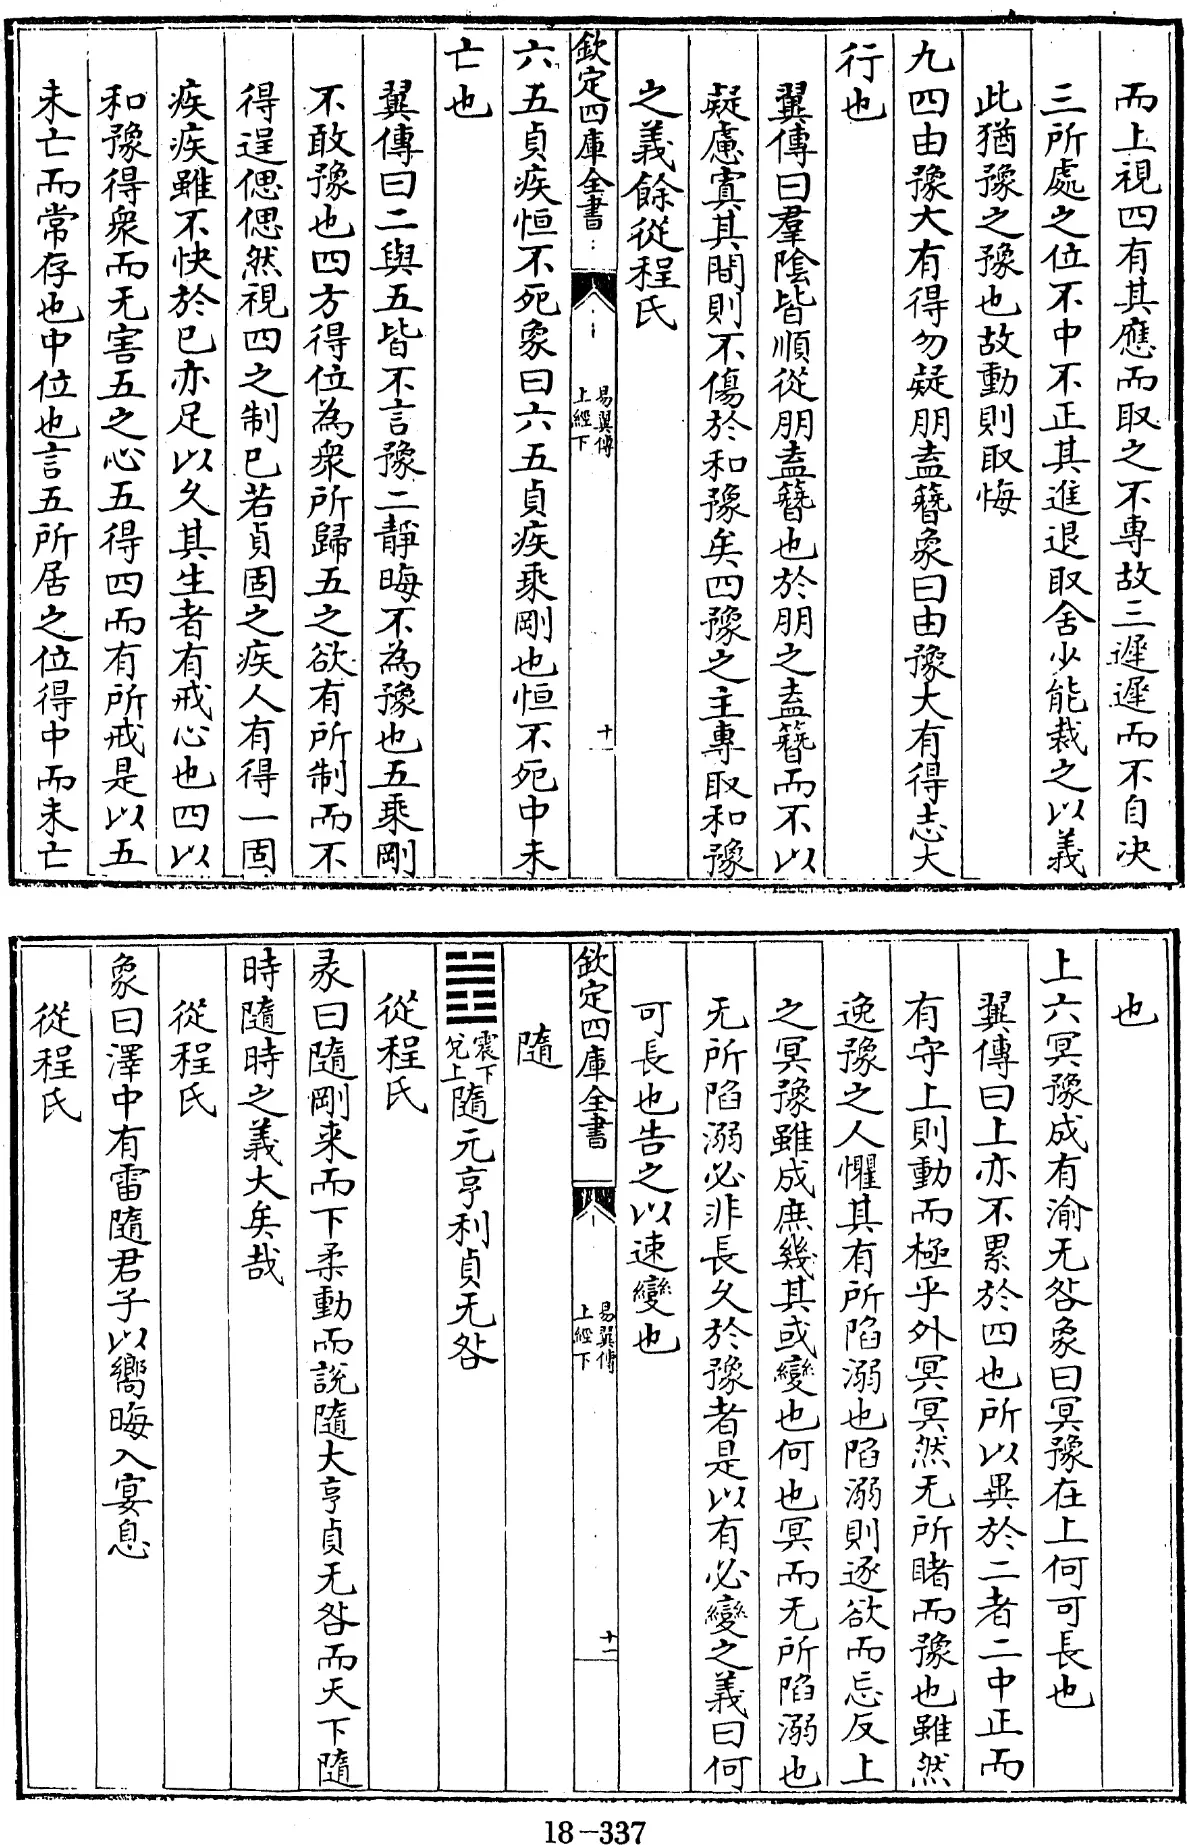 而上視四有其應而取之不專故三遲遲而不自决
三所處之位不中不正其進退取舍少能裁之以義
此猶豫之豫也故動則取悔
九四由豫大有得勿疑朋盍簪象曰由豫大有得志大
行也
翼傳曰羣陰皆順從朋盍簪也於朋之盍簪而不以
疑慮寘其間則不傷於和豫矣四豫之主專取和豫
之義餘從程氏
欽定四庫全書
易翼傳
上經下
十
六五貞疾恒不死象曰六五貞疾乘剛也恒不死中未
亡也
翼傳曰二與五皆不言豫二靜晦不為豫也五乘剛
不敢豫也四方得位為衆所歸五之欲有所制而不
得逞偲偲然視四之制已若貞固之疾人有得一固
疾疾雖不快於已亦足以久其生者有戒心也四以
和豫得衆而无害五之心五得四而有所戒是以五
未亡而常存也中位也言五所居之位得中而未亡
也
上六冥豫成有渝无咎象曰冥豫在上何可長也
翼傳曰上亦不累於四也所以異於二者二中正而
有守上則動而極乎外冥冥然无所睹而豫也雖然
逸豫之人懼其有所陷溺也陷溺則逐欲而忘反上
之冥豫雖成庶幾其或變也何也冥而无所陷溺也
无所陷溺必非長久於豫者是以有必變之義曰何
可長也告之以速變也
欽定四庫全書
易翼傳
上經下
十一
隨
䷐震下
兌上隨元亨利貞无咎
從程氏
彖曰隨剛來而下柔動而說隨大亨貞无咎而天下隨
時隨時之義大矣哉
從程氏
象曰澤中有雷隨君子以嚮晦入宴息
從程氏
18-337